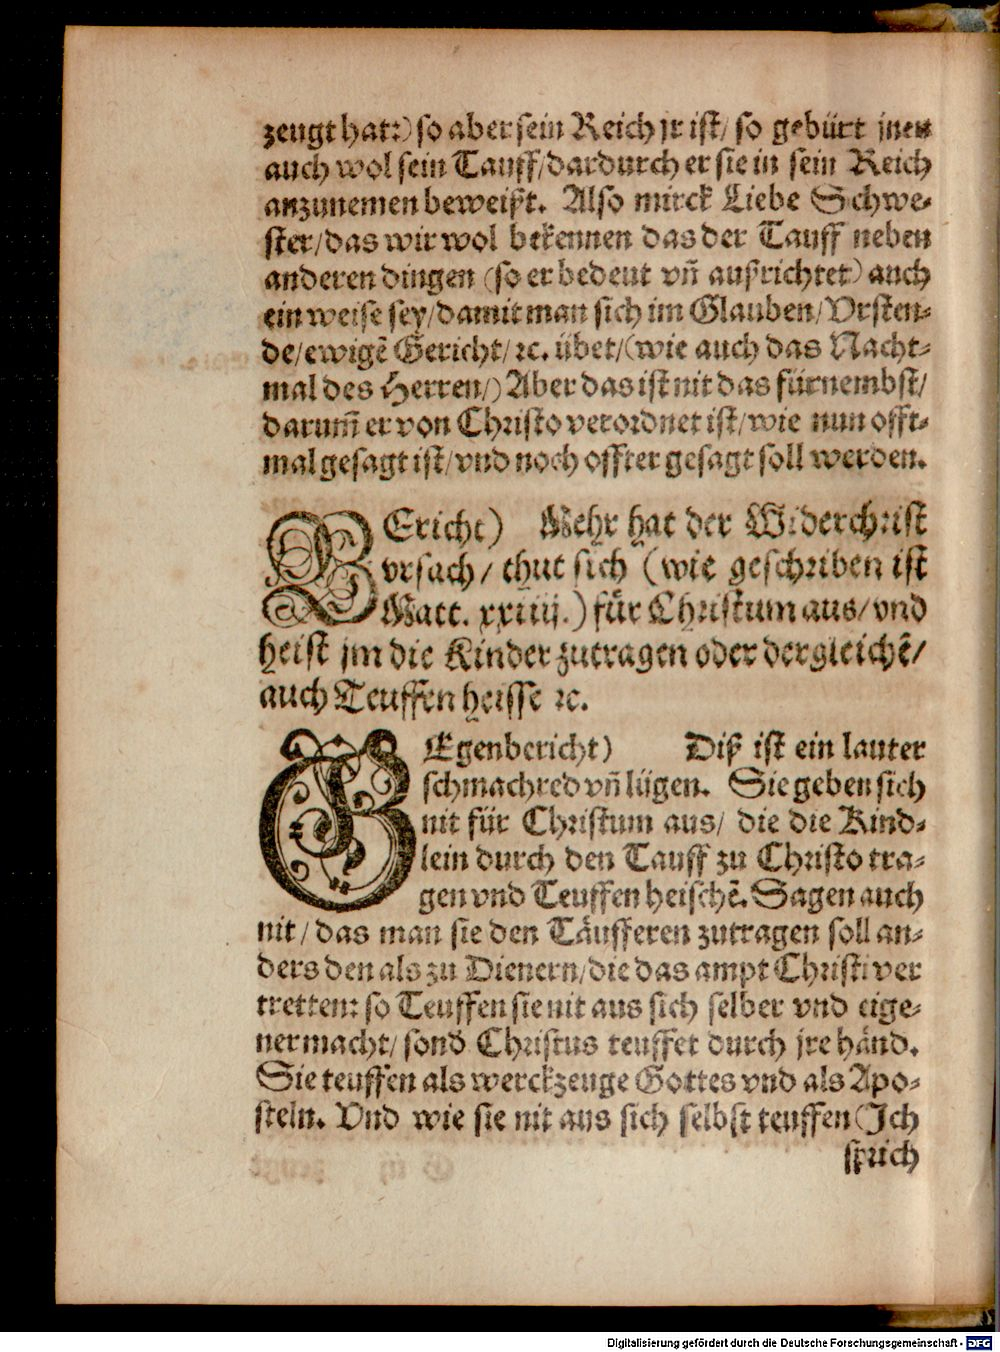 zeugt hat:) so aber sein Reich jr ist/ so gebürt jnen
auch wol sein Tauff/dardurch er sie in sein Reich
anzunemen beweißt. Also mirck Liebe Schwe-
ster/das wir wol bekennen das der Tauff neben
anderen dingen (so er bedeut vñ außrichtet) auch
ein weise sey/damit man sich im Glauben/Vrsten-
de/ewigẽ Gericht/ꝛc. übet/(wie auch das Nacht-
mal des Herren/) Aber das ist nit das fürnembst/
darum̃ er von Christo verordnet ist/wie nun offt-
mal gesagt ist/vnd noch offter gesagt soll werden.
BEricht) Mehr hat der Widerchrist
vrsach/ thut sich (wie geschriben ist
Matt. xxiiij.) für Christum aus/vnd
heist jm die Kinder zutragen oder dergleichẽ/
auch Teuffen heisse ꝛc.
GEgenbericht) Diß ist ein lauter
schmachred vñ lügen. Sie geben sich
nit für Christum aus/ die die Kind-
lein durch den Tauff zu Christo tra-
gen vnd Teuffen heischẽ. Sagen auch
nit/das man sie den Täufferen zutragen soll an-
ders den als zu Dienern/die das ampt Christi ver
tretten: so Teuffen sie nit aus sich selber vnd eige-
ner macht/ sond̄ Christus teuffet durch jre händ.
Sie teuffen als werckzeuge Gottes vnd als Apo-
steln. Vnd wie sie nit aus sich selbst teuffen (Ich
sprich
Digitalisierung gefördert durch die Deutsche Forschungsgemeinschaft - DFG